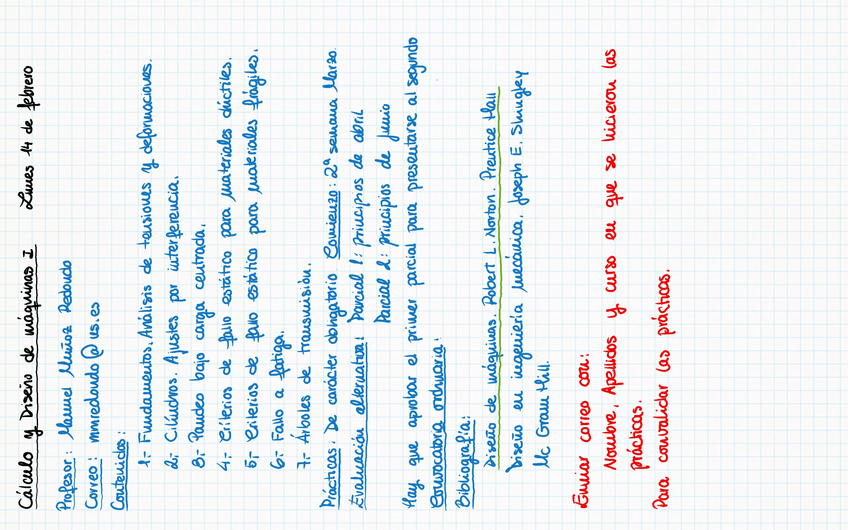 Cálculo y Diseño de máquinas I Lunes 14 de febrero
Profesor: Manuel Muñoz Redondo
Correo: mmredondo@us.es
Contenidos:
1.- Fundamentos. Análisis de tensiones y deformaciones.
2.- Cilindros. Ajustes por interferencia.
3.- Pandeo bajo carga centrada.
4.- Criterios de fallo estático para materiales dúctiles.
5.- Criterios de fallo estático para materiales frágiles.
6.- Fallo a fatiga.
7.- Árboles de transmisión.
Prácticas: De carácter obligatorio Comienzo: 2ª semana Marzo.
Evaluación alternativa: Parcial 1: principios de abril
Parcial 2: principios de junio
Hay que aprobar el primer parcial para presentarse al segundo
Convocatoria ordinaria:
Bibliografía:
Diseño de máquinas. Robert L. Norton. Prentice Hall
Diseño en ingeniería mecánica. Joseph E. Shingley
Mc Graw Hill.
Enviar correo con:
Nombre, Apellidos y curso en que se hicieron las
prácticas.
Para convalidar las prácticas.